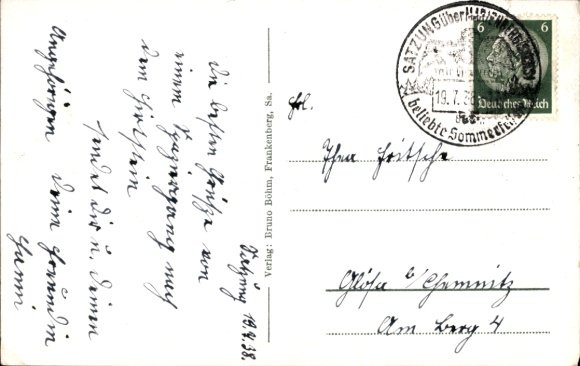 Satzung 19.7.38.
Die besten Grüße von
einem Spaziergang nach
dem Hirtstein
sendet dir u. deinen
Angehörigen deine Freundin
Hanni
Verlag: Bruno Böhm, Frankenberg, Sa.
SATZUNG über MARIENBERG
19.7.38
beliebte Sommerfrische
6 6
Deutsches Reich
Frl.
Thea Fritsche
Glösa b/Chemnitz
Am Berg 4